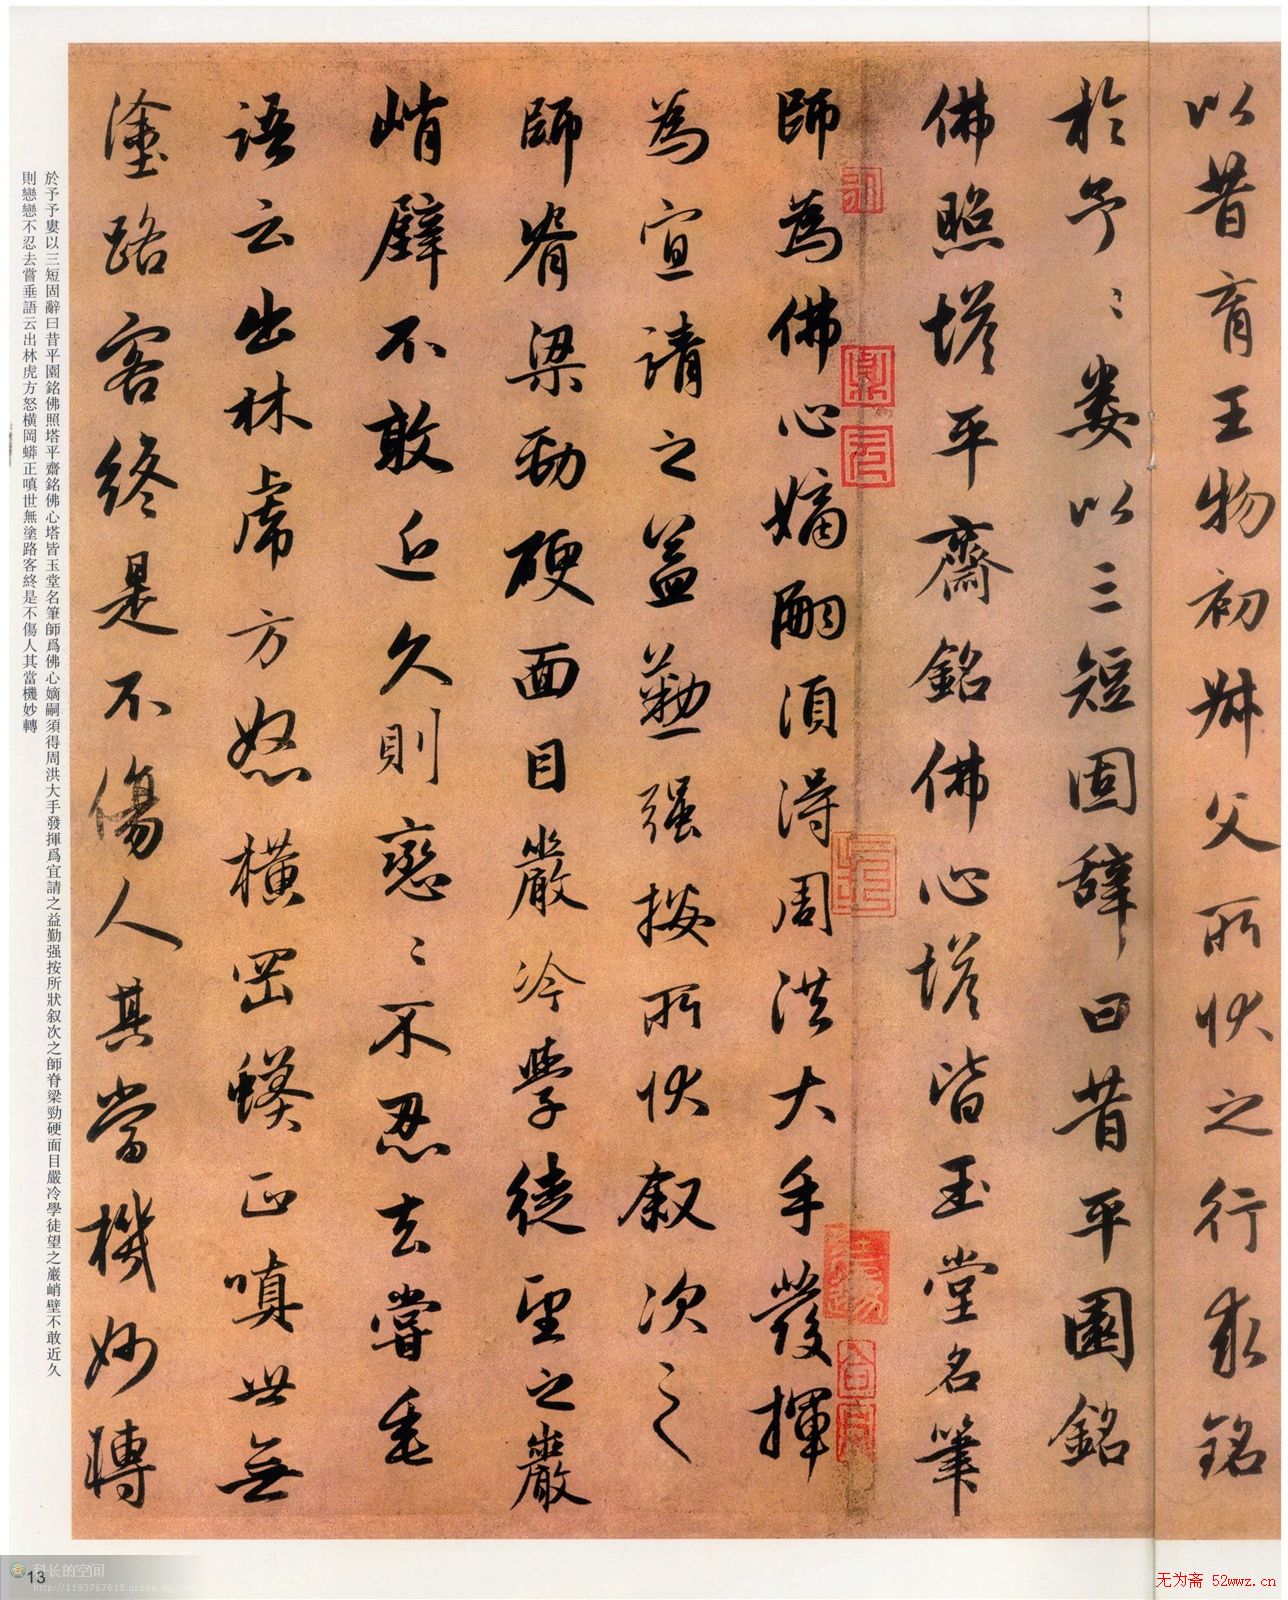 以昔育王物初叔父所狀之行求銘
於予予婁以三短固辭曰昔平園銘
佛照塔平齋銘佛心塔皆玉堂名筆
師為佛心嫡嗣須得周洪大手發揮
為宜請之益勤强按所狀叙次之
師脊梁勁硬面目嚴冷學徒望之巖
峭壁不敢近久則戀戀不忍去嘗垂
語云出林虎方怒橫岡蟒正嗔世無
塗路客終是不傷人其當機妙轉
於予予婁以三短固辭曰昔平園銘佛照塔平齋銘佛心塔皆玉堂名筆師爲佛心嫡嗣須得周洪大手發揮爲宜請之益勤强按所狀叙次之師脊梁勁硬面目嚴冷學徒望之巖峭壁不敢近久
則戀戀不忍去嘗垂語云出林虎方怒橫岡蟒正嗔世無塗路客終是不傷人其當機妙轉
13
科长的空间
http://1193767618.qzone.qq.com
无为斋 52wwz.cn